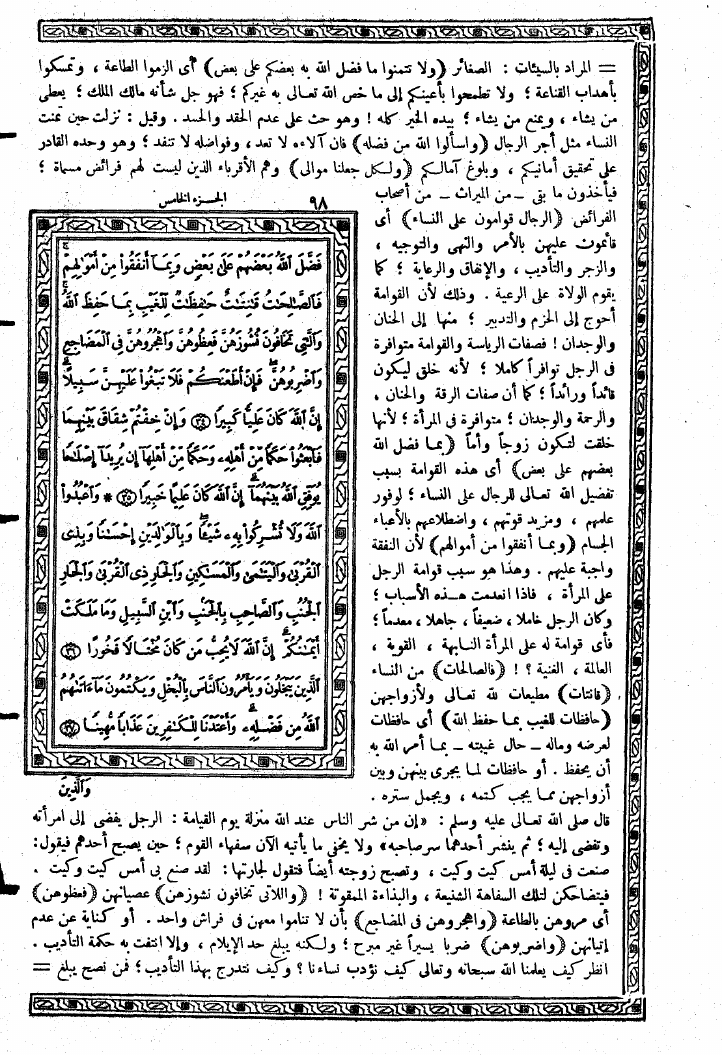 = المراد بالسيئات : الصغائر (ولا تتمنوا ما فضل الله به بعضكم على بعض) أى الزموا الطاعة ، وتمسكوا
بأهداب القناعة ؛ ولا تطمحوا بأعينكم إلى ما خص الله تعالى به غيركم ؛ فهو جل شأنه مالك الملك ؛ يعطى
من يشاء ، ويمنع من يشاء ؛ بيده الخير كله ! وهو حث على عدم الحقد والحسد . وقيل : نزلت حين تمنت
النساء مثل أجر الرجال (واسألوا الله من فضله) فان آلاءه لا تعد ، وفواضله لا تنفد ؛ وهو وحده القادر
على تحقيق أمانيكم ، وبلوغ آمالكم (ولكل جعلنا موالى) وهم الأقرباء الذين ليست لهم فرائض مسماة ؛
فيأخذون ما بقى ــ من الميراث ــ من أصحاب
الفرائض (الرجال قوامون على النساء) أى
قائمون عليهن بالأمر والنهى والتوجيه ،
والزجر والتأديب ، والإنفاق والرعاية ؛ كما
يقوم الولاة على الرعية . وذلك لأن القوامة
أحوج إلى الحزم والتدبير ؛ منها إلى الحنان
والوجدان ! فصفات الرياسة والقوامة متوافرة
فى الرجل توافراً كاملا ؛ لأنه خلق ليكون
قائداً ورائداً ؛ كما أن صفات الرقة والحنان ،
والرحمة والوجدان ؛ متوافرة فى المرأة ؛ لأنها
خلقت لتكون زوجاً وأماً (بما فضل الله
بعضهم على بعض) أى هذه القوامة بسبب
تفضيل الله تعالى للرجال على النساء ؛ لوفور
علمهم ، ومزيد قوتهم ، واضطلاعهم بالأعباء
الجسام (وبما أنفقوا من أموالهم) لأن النفقة
واجبة عليهم . وهذا هو سبب قوامة الرجل
على المرأة ، فاذا انعدمت هذه الأسباب ؛
وكان الرجل خاملا ، ضعيفاً ، جاهلا ، معدماً ؛
فأى قوامة له على المرأة النابهة ، القوية ،
العالمة ، الغنية ؟ ! (فالصالحات) من النساء
(قانتات) مطيعات لله تعالى ولأزواجهن
(حافظات للغيب بما حفظ الله) أى حافظات
لعرضه وماله ــ حال غيبته ــ بما أمر الله به
أن يحفظ . أو حافظات لما يجرى بينهن وبين
أزواجهن مما يجب كتمه ، ويجمل ستره .
٩٨ الجزء الخامس
فَضَّلَ ٱللَّهُ بَعْضَهُمْ عَلَىٰ بَعْضٍ وَبِمَآ أَنفَقُوا۟ مِنْ أَمْوَٰلِهِمْ
فَٱلصَّٰلِحَٰتُ قَٰنِتَٰتٌ حَٰفِظَٰتٌ لِّلْغَيْبِ بِمَا حَفِظَ ٱللَّهُ
وَٱلَّٰتِى تَخَافُونَ نُشُوزَهُنَّ فَعِظُوهُنَّ وَٱهْجُرُوهُنَّ فِى ٱلْمَضَاجِعِ
وَٱضْرِبُوهُنَّ فَإِنْ أَطَعْنَكُمْ فَلَا تَبْغُوا۟ عَلَيْهِنَّ سَبِيلًا
إِنَّ ٱللَّهَ كَانَ عَلِيًّا كَبِيرًا ٣٤ وَإِنْ خِفْتُمْ شِقَاقَ بَيْنِهِمَا
فَٱبْعَثُوا۟ حَكَمًا مِّنْ أَهْلِهِۦ وَحَكَمًا مِّنْ أَهْلِهَآ إِن يُرِيدَآ إِصْلَٰحًا
يُوَفِّقِ ٱللَّهُ بَيْنَهُمَآ إِنَّ ٱللَّهَ كَانَ عَلِيمًا خَبِيرًا ٣٥ * وَٱعْبُدُوا۟
ٱللَّهَ وَلَا تُشْرِكُوا۟ بِهِۦ شَيْـًٔا وَبِٱلْوَٰلِدَيْنِ إِحْسَٰنًا وَبِذِى
ٱلْقُرْبَىٰ وَٱلْيَتَٰمَىٰ وَٱلْمَسَٰكِينِ وَٱلْجَارِ ذِى ٱلْقُرْبَىٰ وَٱلْجَارِ
ٱلْجُنُبِ وَٱلصَّاحِبِ بِٱلْجَنۢبِ وَٱبْنِ ٱلسَّبِيلِ وَمَا مَلَكَتْ
أَيْمَٰنُكُمْ إِنَّ ٱللَّهَ لَا يُحِبُّ مَن كَانَ مُخْتَالًا فَخُورًا ٣٦
ٱلَّذِينَ يَبْخَلُونَ وَيَأْمُرُونَ ٱلنَّاسَ بِٱلْبُخْلِ وَيَكْتُمُونَ مَآ ءَاتَىٰهُمُ
ٱللَّهُ مِن فَضْلِهِۦ وَأَعْتَدْنَا لِلْكَٰفِرِينَ عَذَابًا مُّهِينًا ٣٧
وَٱلَّذِينَ
قال صلى الله تعالى عليه وسلم : «إن من شر الناس عند الله منزلة يوم القيامة : الرجل يفضى إلى امرأته
وتفضى إليه ؛ ثم ينشر أحدهما سر صاحبه» ولا يخفى ما يأتيه الآن سفهاء القوم ؛ حين يصبح أحدهم فيقول :
صنعت فى ليلة أمس كيت وكيت ، وتصبح زوجته أيضاً فتقول لجارتها : لقد صنع بى أمس كيت وكيت .
فيتضاحكن لتلك السفاهة الشنيعة ، والبذاءة الممقوتة ! (واللاتى تخافون نشوزهن) عصيانهن (فعظوهن)
أى مروهن بالطاعة (واهجروهن فى المضاجع) بأن لا تناموا معهن فى فراش واحد . أو كناية عن عدم
إتيانهن (واضربوهن) ضربا يسيراً غير مبرح ؛ ولكنه يبلغ حد الإيلام ، وإلا انتفت به حكمة التأديب .
انظر كيف يعلمنا الله سبحانه وتعالى كيف نؤدب نساءنا ؟ وكيف نتدرج بهذا التأديب ؛ فمن نصح يبلغ =